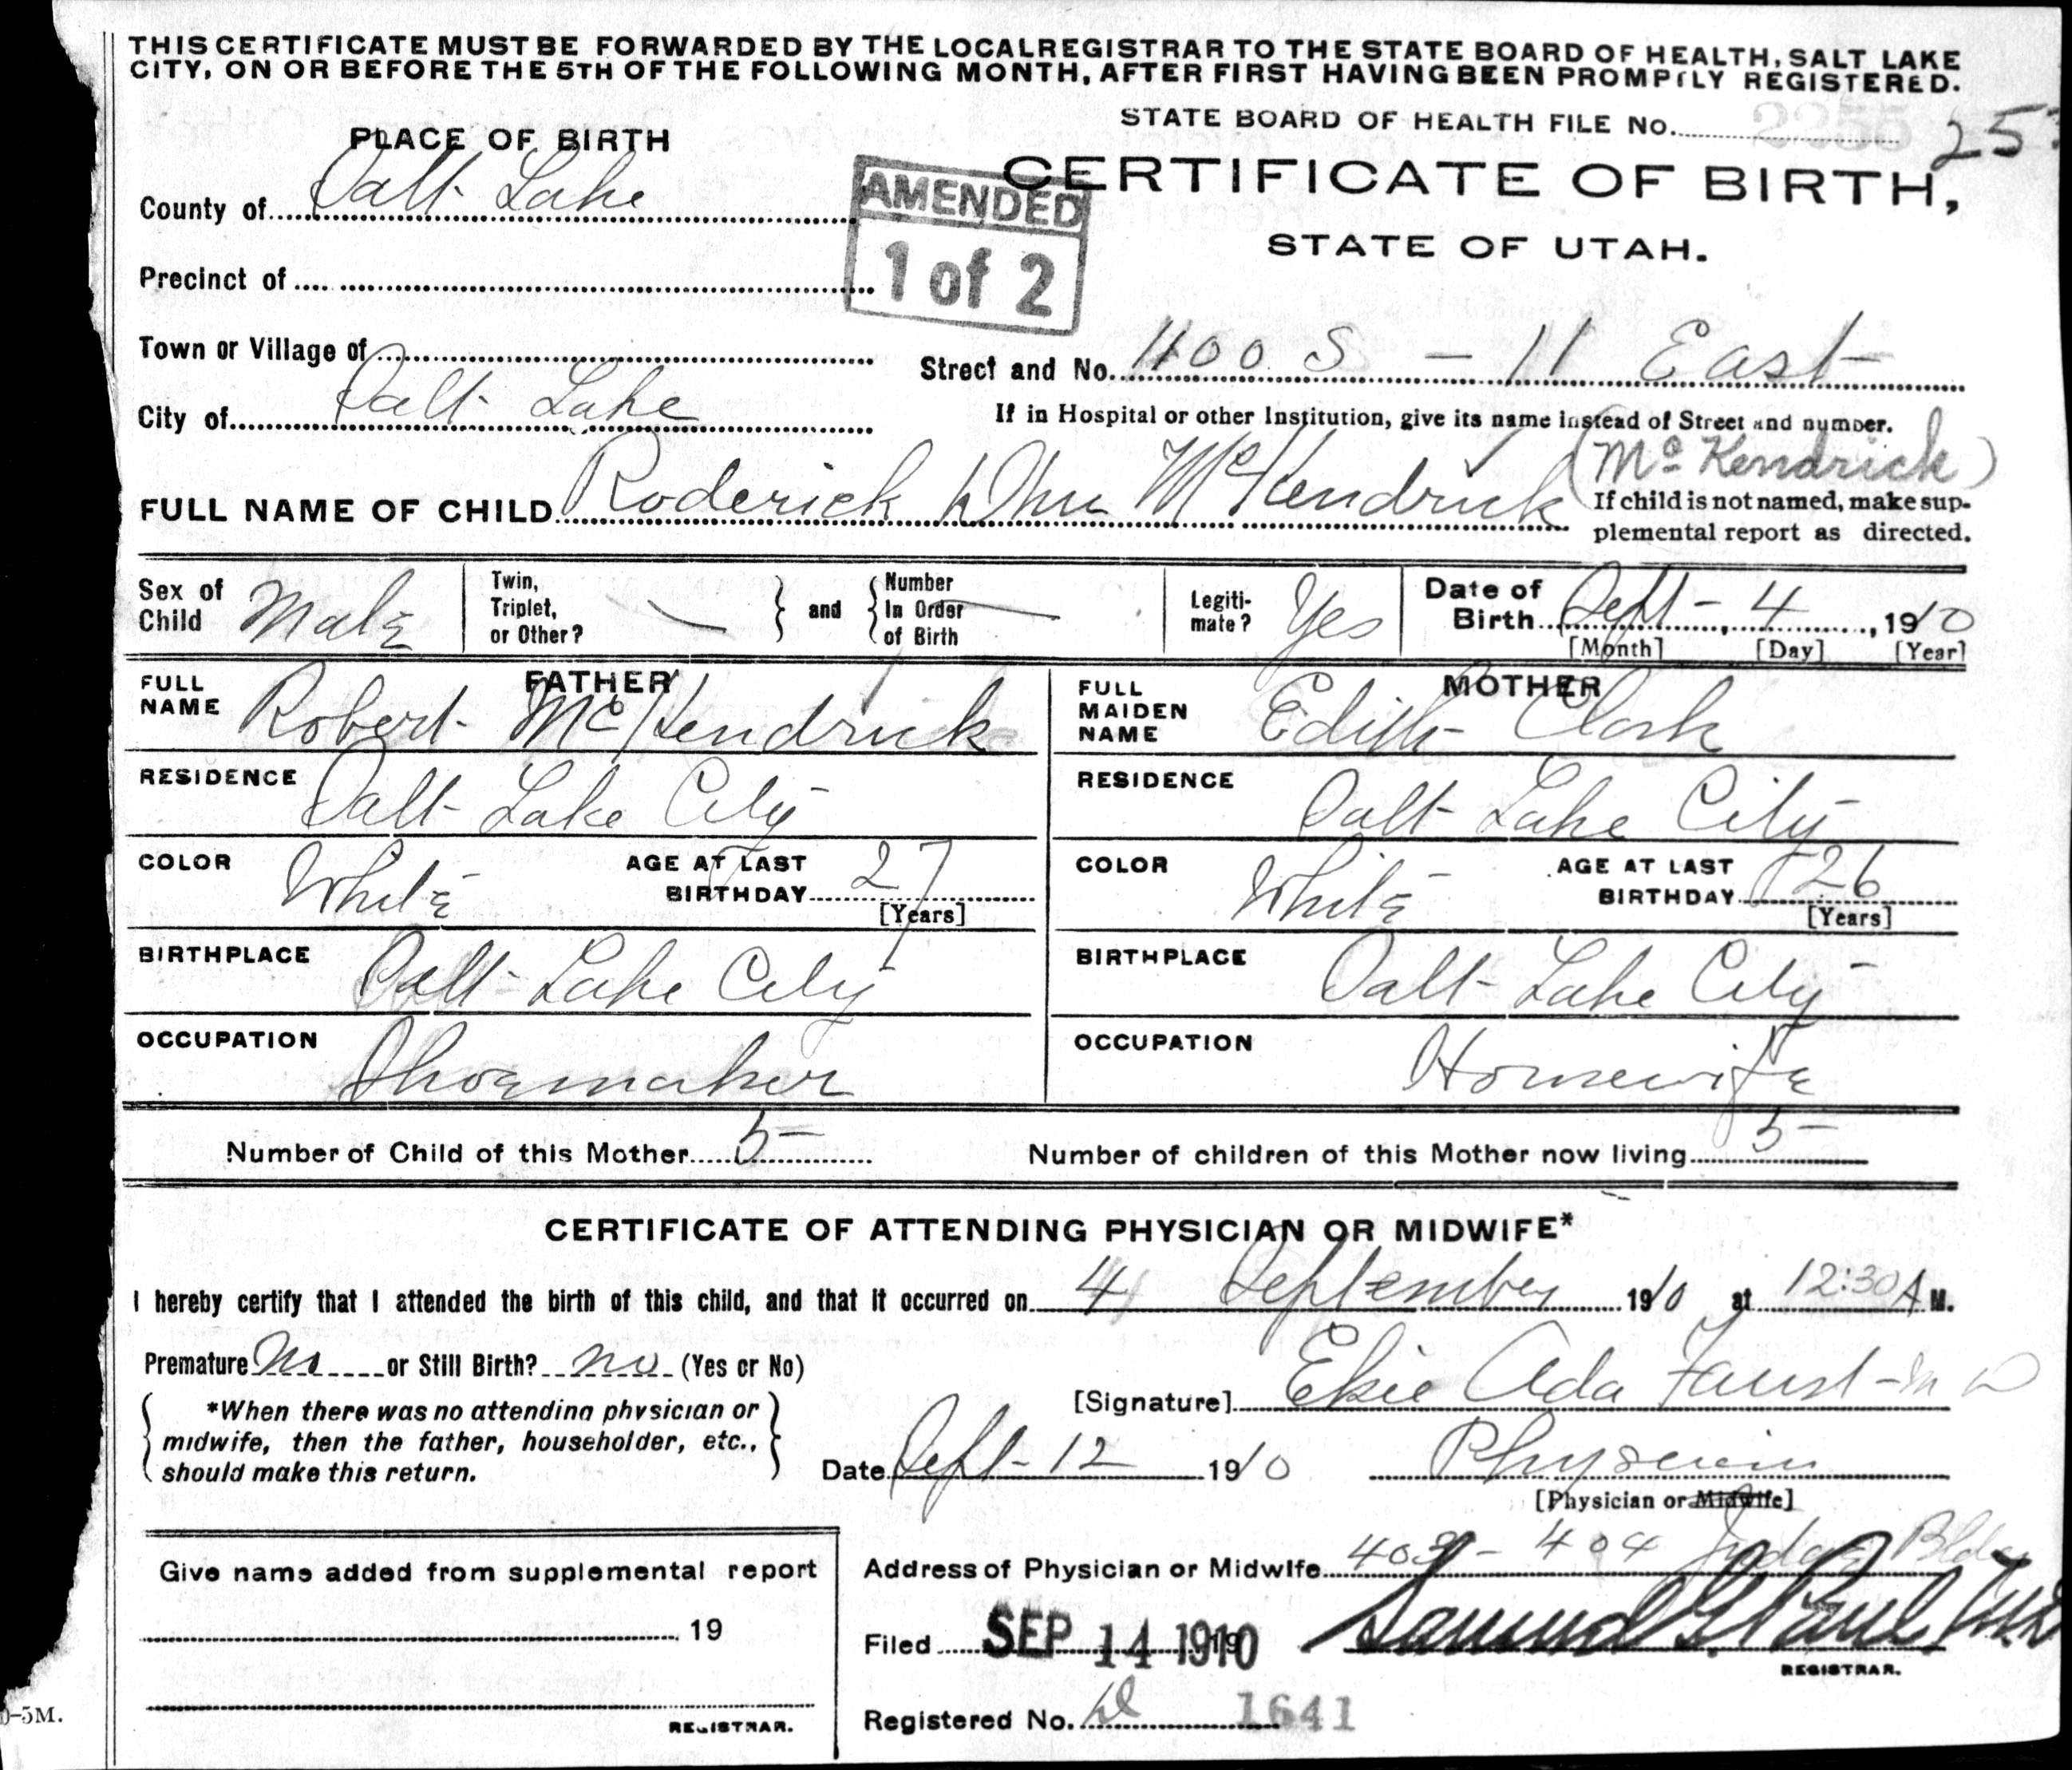 THIS CERTIFICATE MUST BE FORWARDED BY THE LOCAL REGISTRAR TO THE STATE BOARD OF HEALTH, SALT LAKE
CITY, ON OR BEFORE THE 5TH OF THE FOLLOWING MONTH, AFTER FIRST HAVING BEEN PROMPTLY REGISTERED.
STATE BOARD OF HEALTH FILE No. 25
PLACE OF BIRTH
CERTIFICATE OF BIRTH,
STATE OF UTAH.
AMENDED
1 of 2
County of Salt Lake
Precinct of
Town or Village of
Street and No. 1100 S - 11 East
City of Salt Lake
If in Hospital or other Institution, give its name instead of Street and number.
(McKendrick)
FULL NAME OF CHILD Roderick Dhu McKendrick
If child is not named, make sup-
plemental report as directed.
Sex of Child Male
Twin, Triplet, or Other? — and Number In Order of Birth —
Legiti-mate? Yes
Date of Birth Sept - 4, 1910
[Month] [Day] [Year]
FATHER
FULL NAME Robert McKendrick
RESIDENCE Salt Lake City
COLOR White AGE AT LAST BIRTHDAY 27
[Years]
BIRTHPLACE Salt Lake City
OCCUPATION Shoemaker
MOTHER
FULL MAIDEN NAME Edith Clark
RESIDENCE Salt Lake City
COLOR White AGE AT LAST BIRTHDAY 26
[Years]
BIRTHPLACE Salt Lake City
OCCUPATION Housewife
Number of Child of this Mother 5 Number of children of this Mother now living 5
CERTIFICATE OF ATTENDING PHYSICIAN OR MIDWIFE*
I hereby certify that I attended the birth of this child, and that it occurred on 4 September 1910 at 12:30 A M.
Premature No or Still Birth? no (Yes or No)
*When there was no attending physician or
midwife, then the father, householder, etc.,
should make this return.
[Signature] Elsie Ada Faust M D
Date Sept - 12 1910 Physician
[Physician or Midwife]
Address of Physician or Midwife 403 - 404 Judge Bldg
Give name added from supplemental report
19
REGISTRAR.
Filed SEP 14 1910 19 Samuel G. Paul
REGISTRAR.
Registered No. 1641
0-5M.